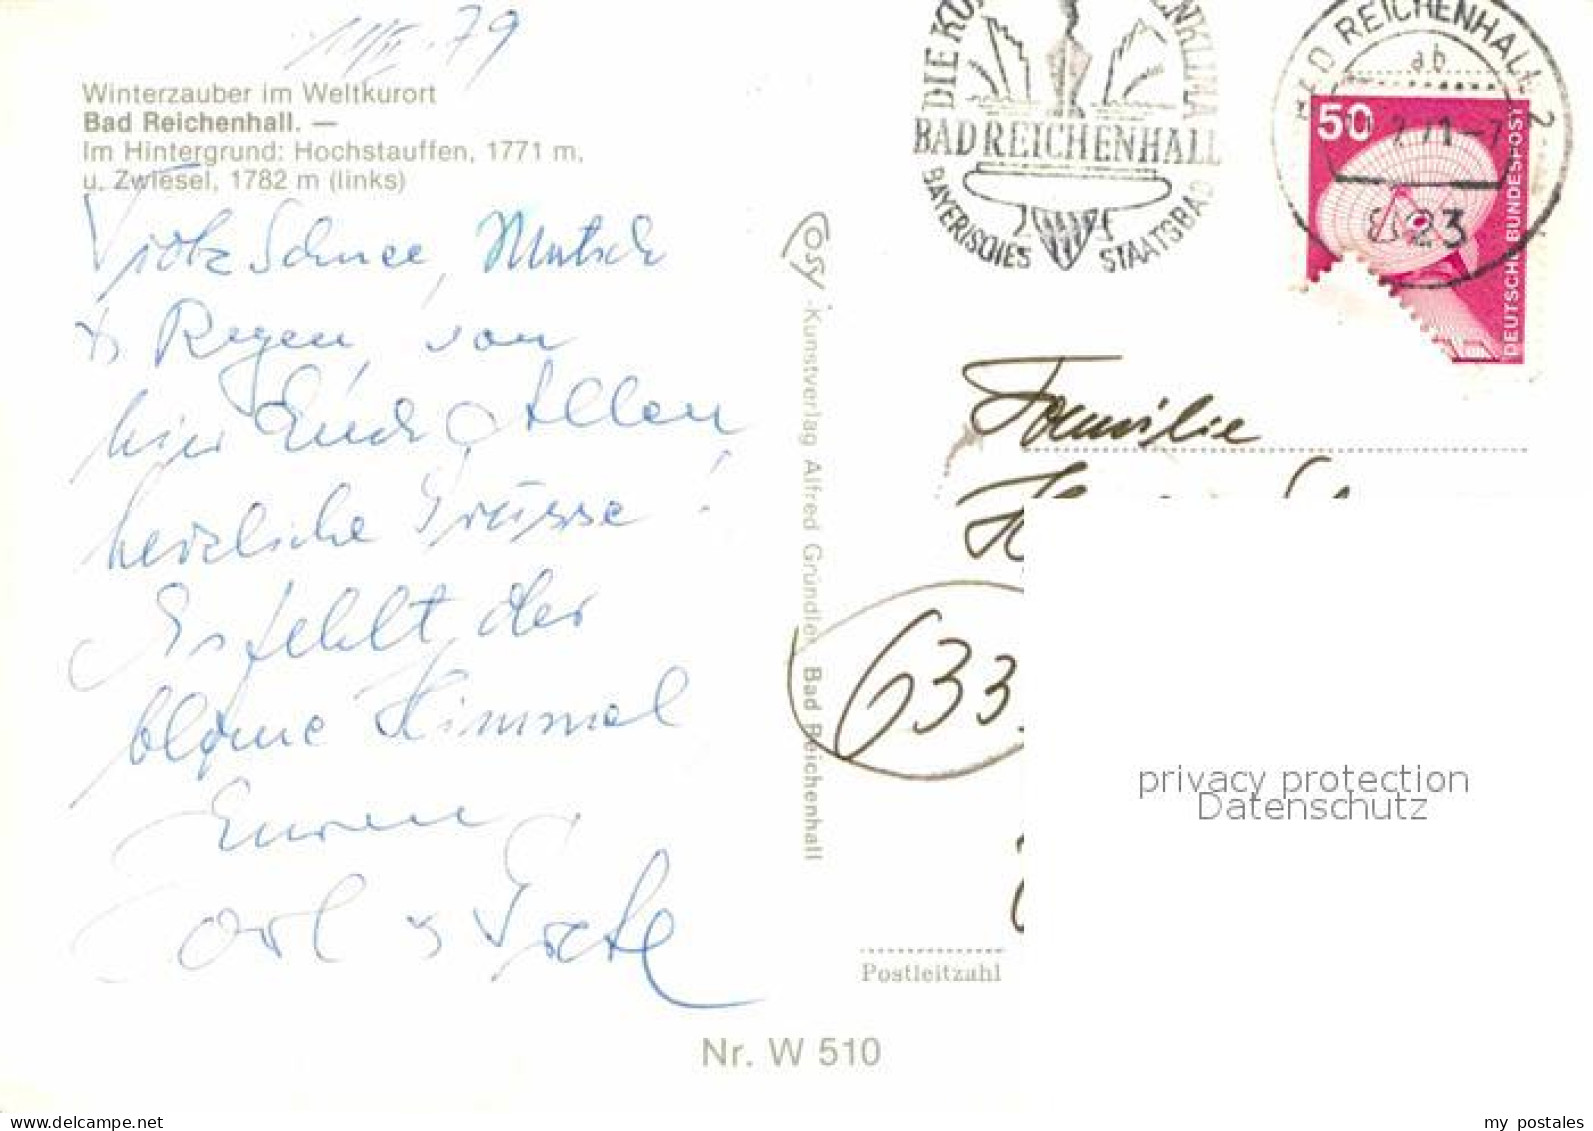 11/II. 79
Winterzauber im Weltkurort
Bad Reichenhall. —
Im Hintergrund: Hochstauffen, 1771 m,
u. Zwiesel, 1782 m (links)
Trotz Schnee, Matsch
& Regen, von
hier Euch Allen
herzliche Grüsse!
Es fehlt der
blaue Himmel
Euren
Carl & Grete
Cosy -Kunstverlag Alfred Gründler, Bad Reichenhall
BAD REICHENHALL
BAYERISCHES STAATSBAD
BAD REICHENHALL 2
ab
823
50
DEUTSCHE BUNDESPOST
Familie
633
Postleitzahl
Nr. W 510
privacy protection
Datenschutz
my postales